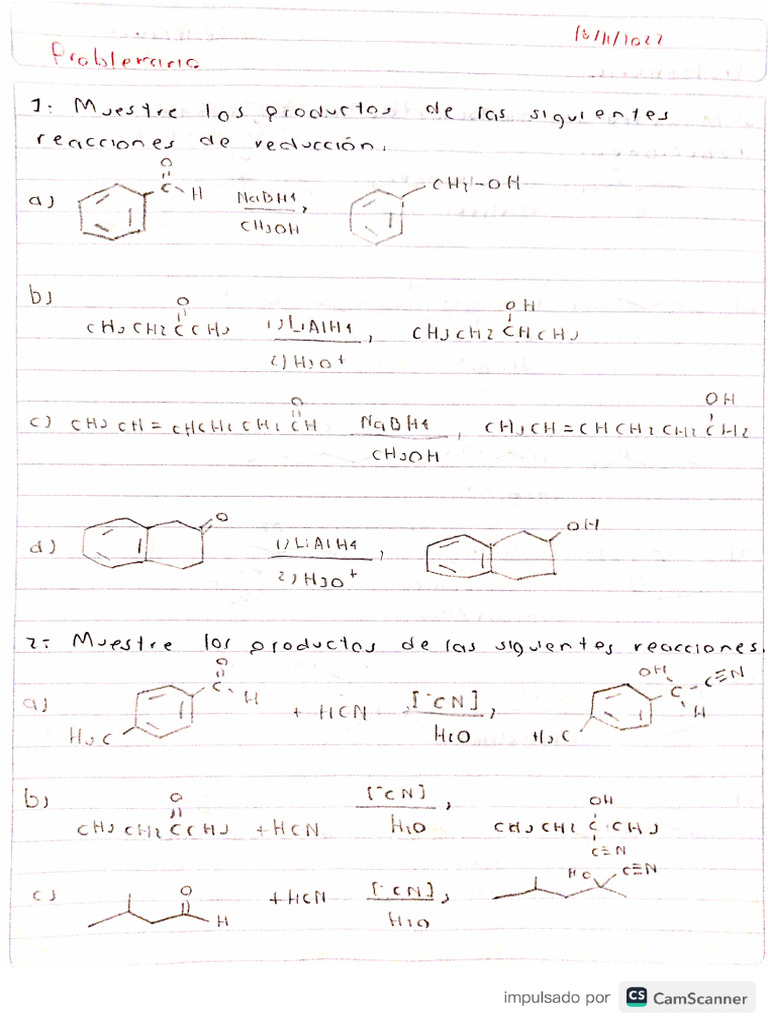 18/11/2022
Problemario
1: Muestre los productos de las siguientes
reacciones de reducción.
a) O C H NaBH4 CH3OH CH2-OH
b) CH3CH2CCH3 O 1) LiAlH4, 2) H3O+ OH CH3CH2CHCH3
c) CH3CH=CHCH2CH2CH O NaBH4, CH3OH OH CH3CH=CHCH2CH2CH2
d) O 1) LiAlH4, 2) H3O+ OH
2: Muestre los productos de las siguientes reacciones.
a) H3C O C H + HCN [-CN], H2O H3C OH C C≡N H
b) O CH3CH2CCH3 + HCN [-CN], H2O OH CH3CH2C CH3 C≡N
c) O H + HCN [-CN], H2O HO C≡N
impulsado por CS CamScanner